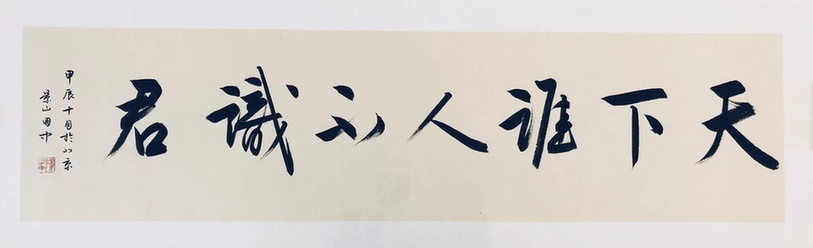 天下谁人不識君
甲辰十月於北京
景山田中